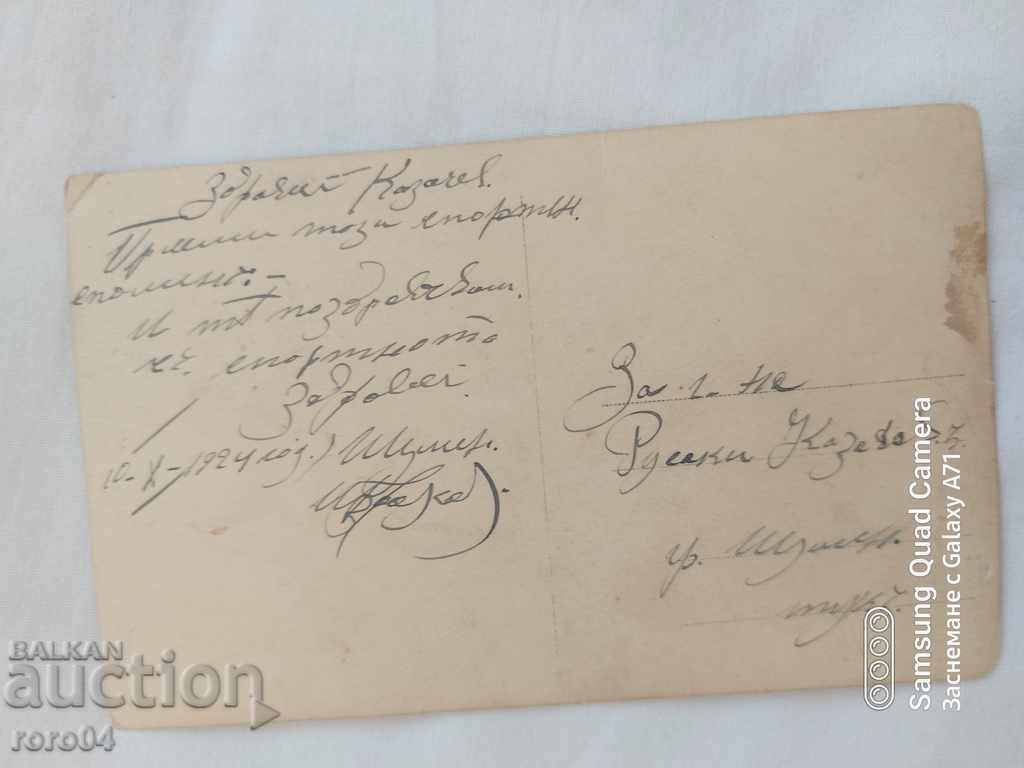 Здравий Казачев.
Приеми този спортен
спомен. -
И те поздравявам.
със спортното
Здравей
10-X-1924 год.) Шумен.
За г-не
Русаки
гр. Шумен.
тукъ.
BALKAN
auction
roro04
Samsung Quad Camera
Заснемане с Galaxy A71